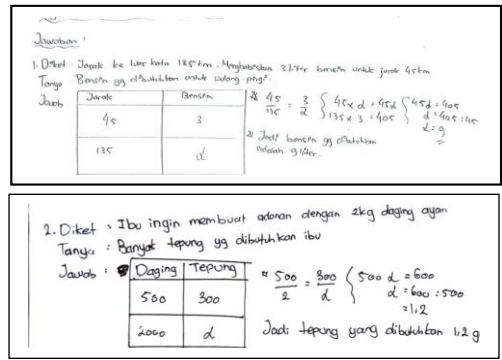 Jawaban :
1. Diket : Jarak ke luar kota 135 km. Menghabiskan 3 liter bensin untuk jarak 45km
Tanya Bensin yg dibutuhkan untuk pulang-pergi.
Jawab
Jarak Bensin
45 3
135 d
45/135 = 3/d { 45 x d = 45d { 45d = 405
135 x 3 = 405 d = 405 : 45
d = 9
Jadi bensin yg dibutuhkan
adalah 9 liter.
2. Diket : Ibu ingin membuat adonan dengan 2kg daging ayam
Tanya : Banyak tepung yg dibutuhkan ibu
Jawab :
Daging Tepung
500 300
2000 d
500/2 = 300/d { 500 d = 600
d = 600 : 500
= 1,2
Jadi tepung yang dibutuhkan 1,2 g